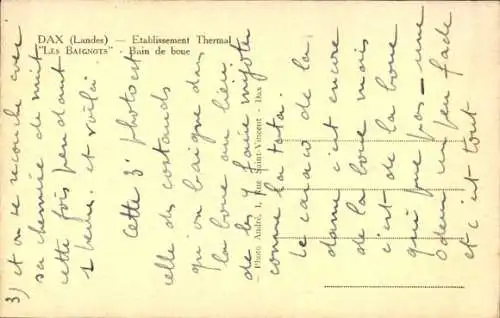 DAX (Landes) — Etablissement Thermal
"LES BAIGNOTS" - Bain de boue
— Photo André, 1, Rue Saint-Vincent - Dax
3) et on se recouche avec
sa chemise de nuit
cette fois pendant
1 heure. et voilà
Cette 3e photo est
celle des costauds
qu'on baigne dans
la boue au lieu
de les y faire mijoter
comme la tata.
Le caraco de la
dame c'est encore
de la boue mais
c'est de la boue
qui pue pas - une
odeur un peu fade
et c'est tout